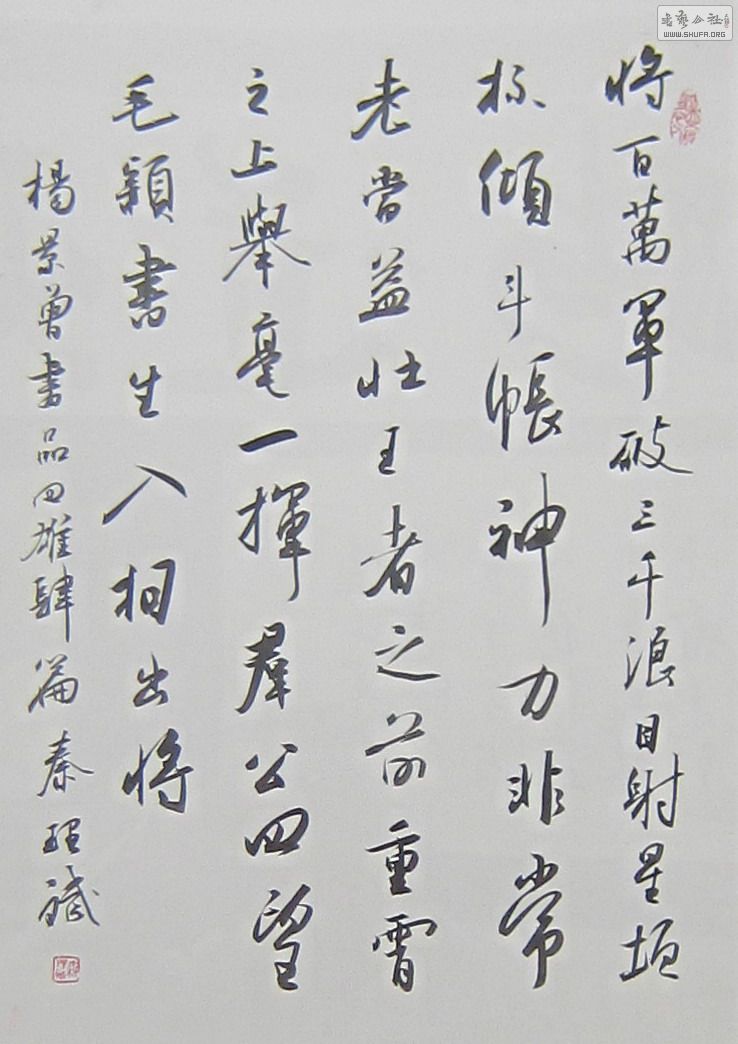 書藝公社
WWW.SHUFA.ORG
將百萬軍破三千浪目射星垣
杯傾斗帳神力非常
老當益壯王者之前重霄
之上舉毫一揮羣公四望
毛穎書生入相出將
楊景曾書品雄肆篇秦